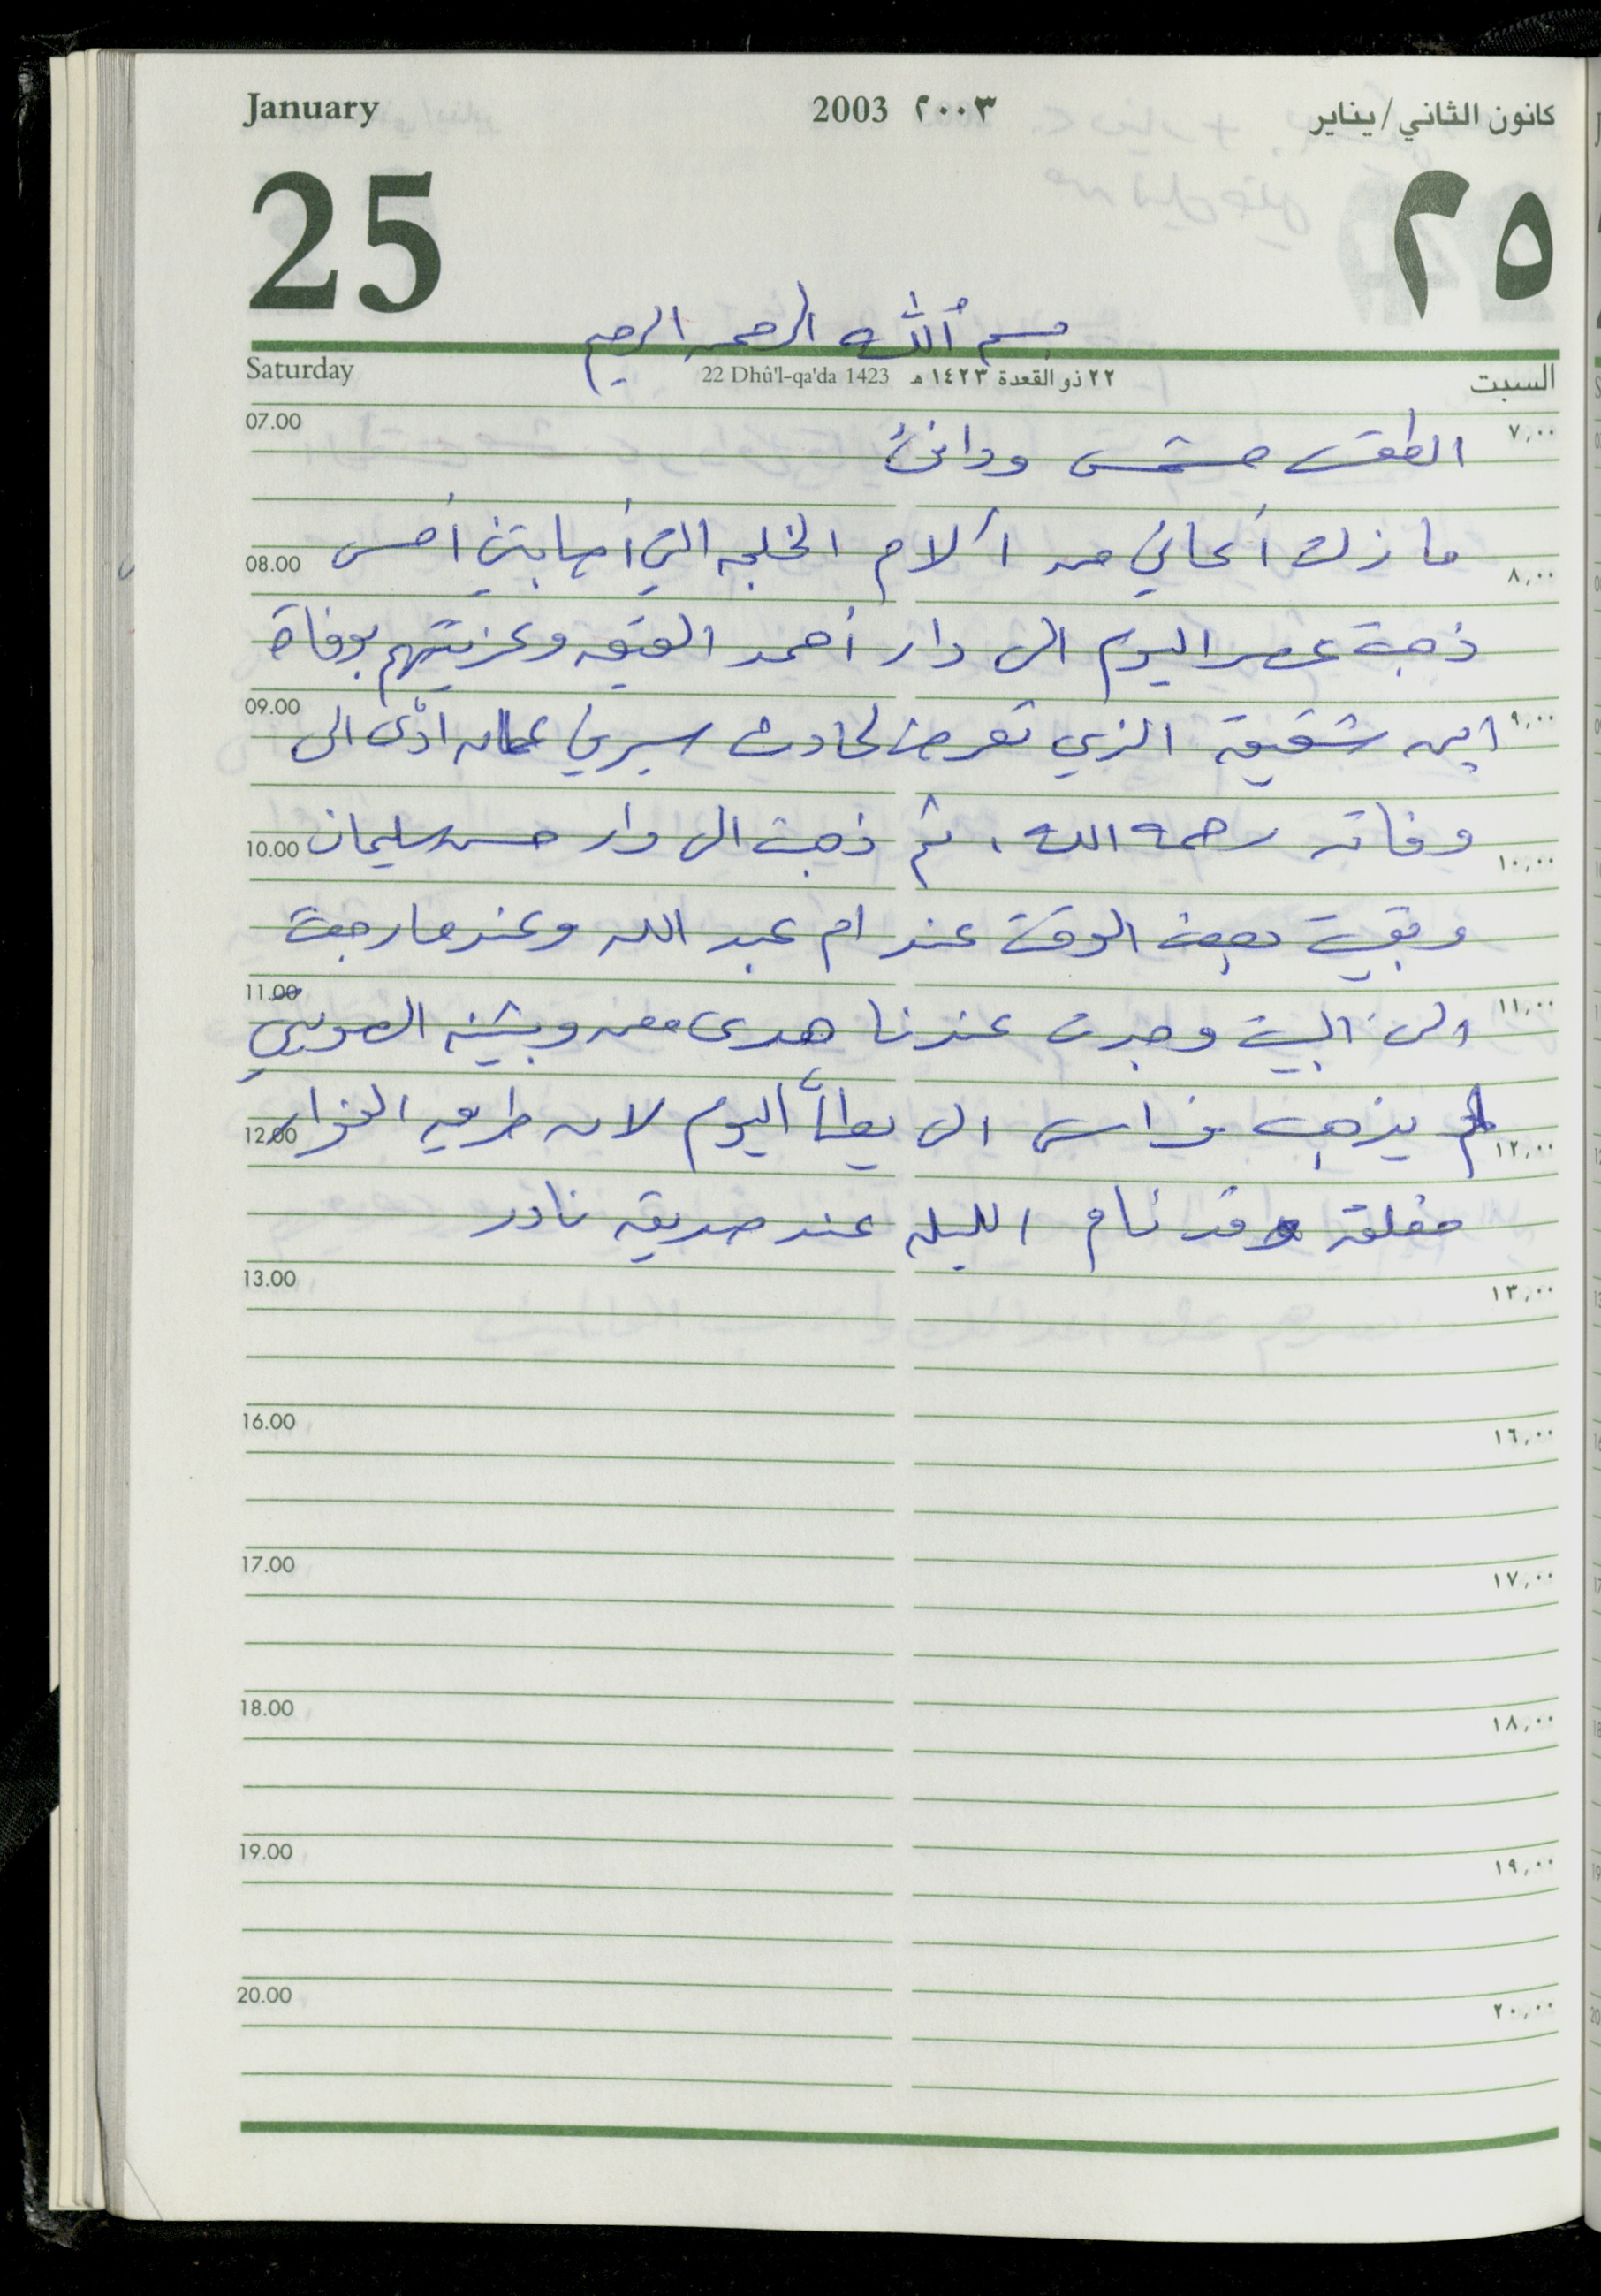 January 2003 ٢٠٠٣ كانون الثاني/يناير
25 ٢٥
بسم الله الرحمن الرحيم
Saturday 22 Dhû'l-qa'da 1423 ٢٢ ذو القعدة ١٤٢٣ هـ السبت
07.00 ٧,٠٠
الطقس مشمس ودافئ
ما زلت أعاني من آلام الخلجه التي أصابتني أمس
08.00 ٨,٠٠
ذهبت عصر اليوم الى دار أحمد الفقيه وعزيتهم بوفاة
09.00 ٩,٠٠
ابن شقيقه الذي تعرض لحادث سير في عمان أدّى الى
وفاته رحمه الله، ثم ذهبت الى دار حسن سليمان
10.00 ١٠,٠٠
وبقيت بعض الوقت عند ام عبد الله وعندما رجعت
11.00 ١١,٠٠
الى البيت وجدت عندنا هدى معن وبثينه
لم يذهب فراس الى يطا اليوم لان طريق الفوار
12.00 ١٢,٠٠
مغلقه وقد نام الليله عند صديقه نادر
13.00 ١٣,٠٠
16.00 ١٦,٠٠
17.00 ١٧,٠٠
18.00 ١٨,٠٠
19.00 ١٩,٠٠
20.00 ٢٠,٠٠